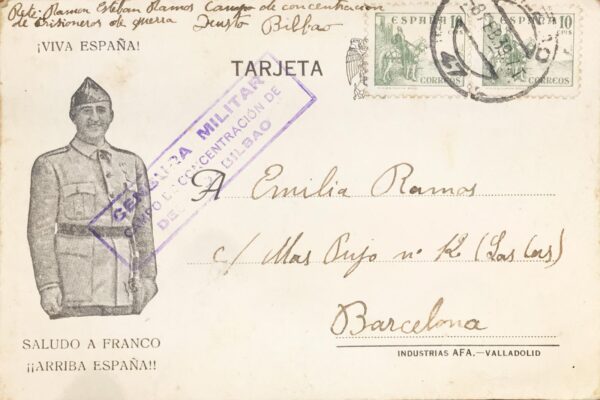 Rete: Ramon Esteban Ramos Campo de concentracion
de Prisioneros de guerra Deusto Bilbao
¡VIVA ESPAÑA!
TARJETA
ESPAÑA 10 CTS
CORREOS
ESPAÑA 10 CTS
CORREOS
47
CENSURA MILITAR
CAMPO DE CONCENTRACIÓN DE
BILBAO
A Emilia Ramos
c/ Mas
Barcelona
SALUDO A FRANCO
¡¡ARRIBA ESPAÑA!!
INDUSTRIAS AFA.—VALLADOLID